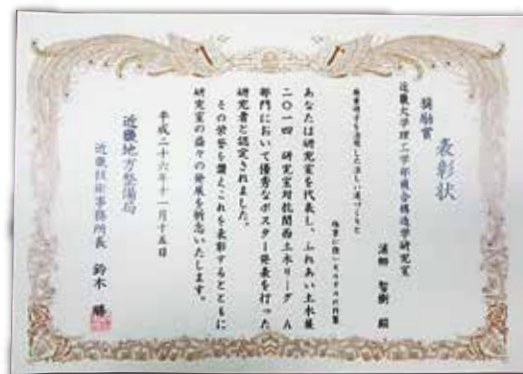 表彰状
奨励賞
近畿大学理工学部複合構造学研究室
智樹 殿
あなたは研究室を代表し、ふれあい土木展
二〇一四 研究室対抗関西土木リーグ A
部門において優秀なポスター発表を行った
研究者と認定されました。
その栄誉を讃えこれを表彰するとともに
研究室の益々の発展を祈念いたします。
平成二十六年十一月十五日
近畿地方整備局
近畿技術事務所長 鈴木 勝